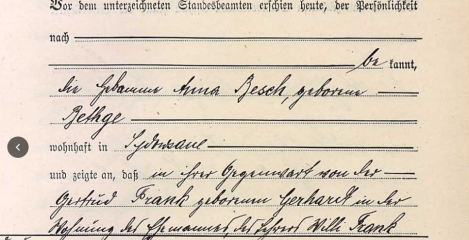 Vor dem unterzeichneten Standesbeamten erschien heute, der Persönlichkeit
nach
be kannt,
die Hebamme Anna Resch, geborene
Bethge
wohnhaft in
und zeigte an, daß in ihrer Gegenwart von der
Gertrud Frank geborenen Gerhardt in der
Wohnung des Ehemannes, des Lehrers Willi Frank